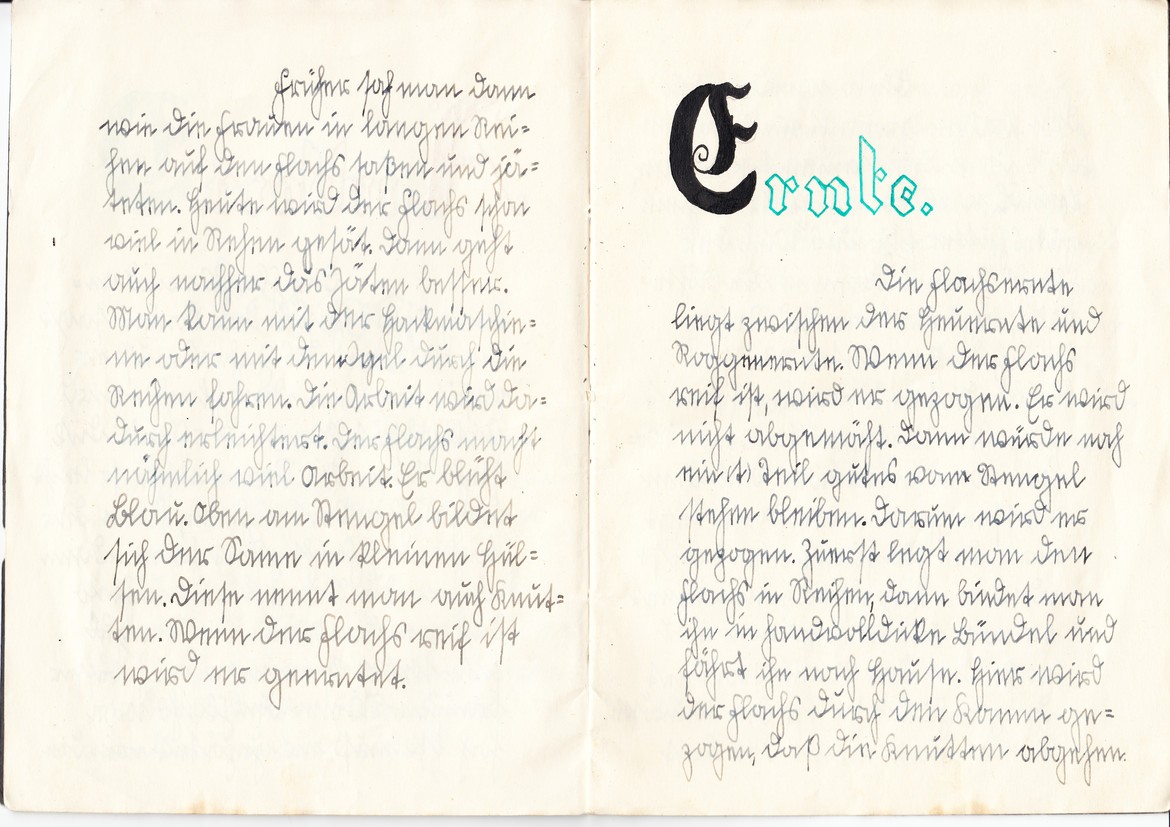 Früher sah man dann
wie die Frauen in langen Rei=
hen auf den Flachs saßen und jä=
teten. Heute wird der Flachs schon
viel in Rehen gesät. Dann geht
auch nachher das Jäten besser.
Man kann mit der Hackmaschie=
ne oder mit dem Igel durch die
Reihen fahren. Die Arbeit wird da=
durch erleichtert. Der Flachs macht
nähmlich viel Arbeit. Er blüht
Blau. Oben am Stengel bildet
sich der Same in kleinen Hül=
sen. Diese nennt man auch Knut=
ten. Wenn der Flachs reif ist
wird er geerntet.
Ernte.
Die Flachsernte
liegt zwischen der Heuernte und
Roggenernte. Wenn der Flachs
reif ist, wird er gezogen. Er wird
nicht abgemäht. Dann würde noch
ein (t) Teil gutes vom Stengel
stehen bleiben. Darum wird er
gezogen. Zuerst legt man den
Flachs in Reihen, dann bindet man
ihn in handvolldicke Bündel und
fährt ihn nach Hause. Hier wird
der Flachs durch den Kamm ge=
zogen, daß die Knutten abgehen.